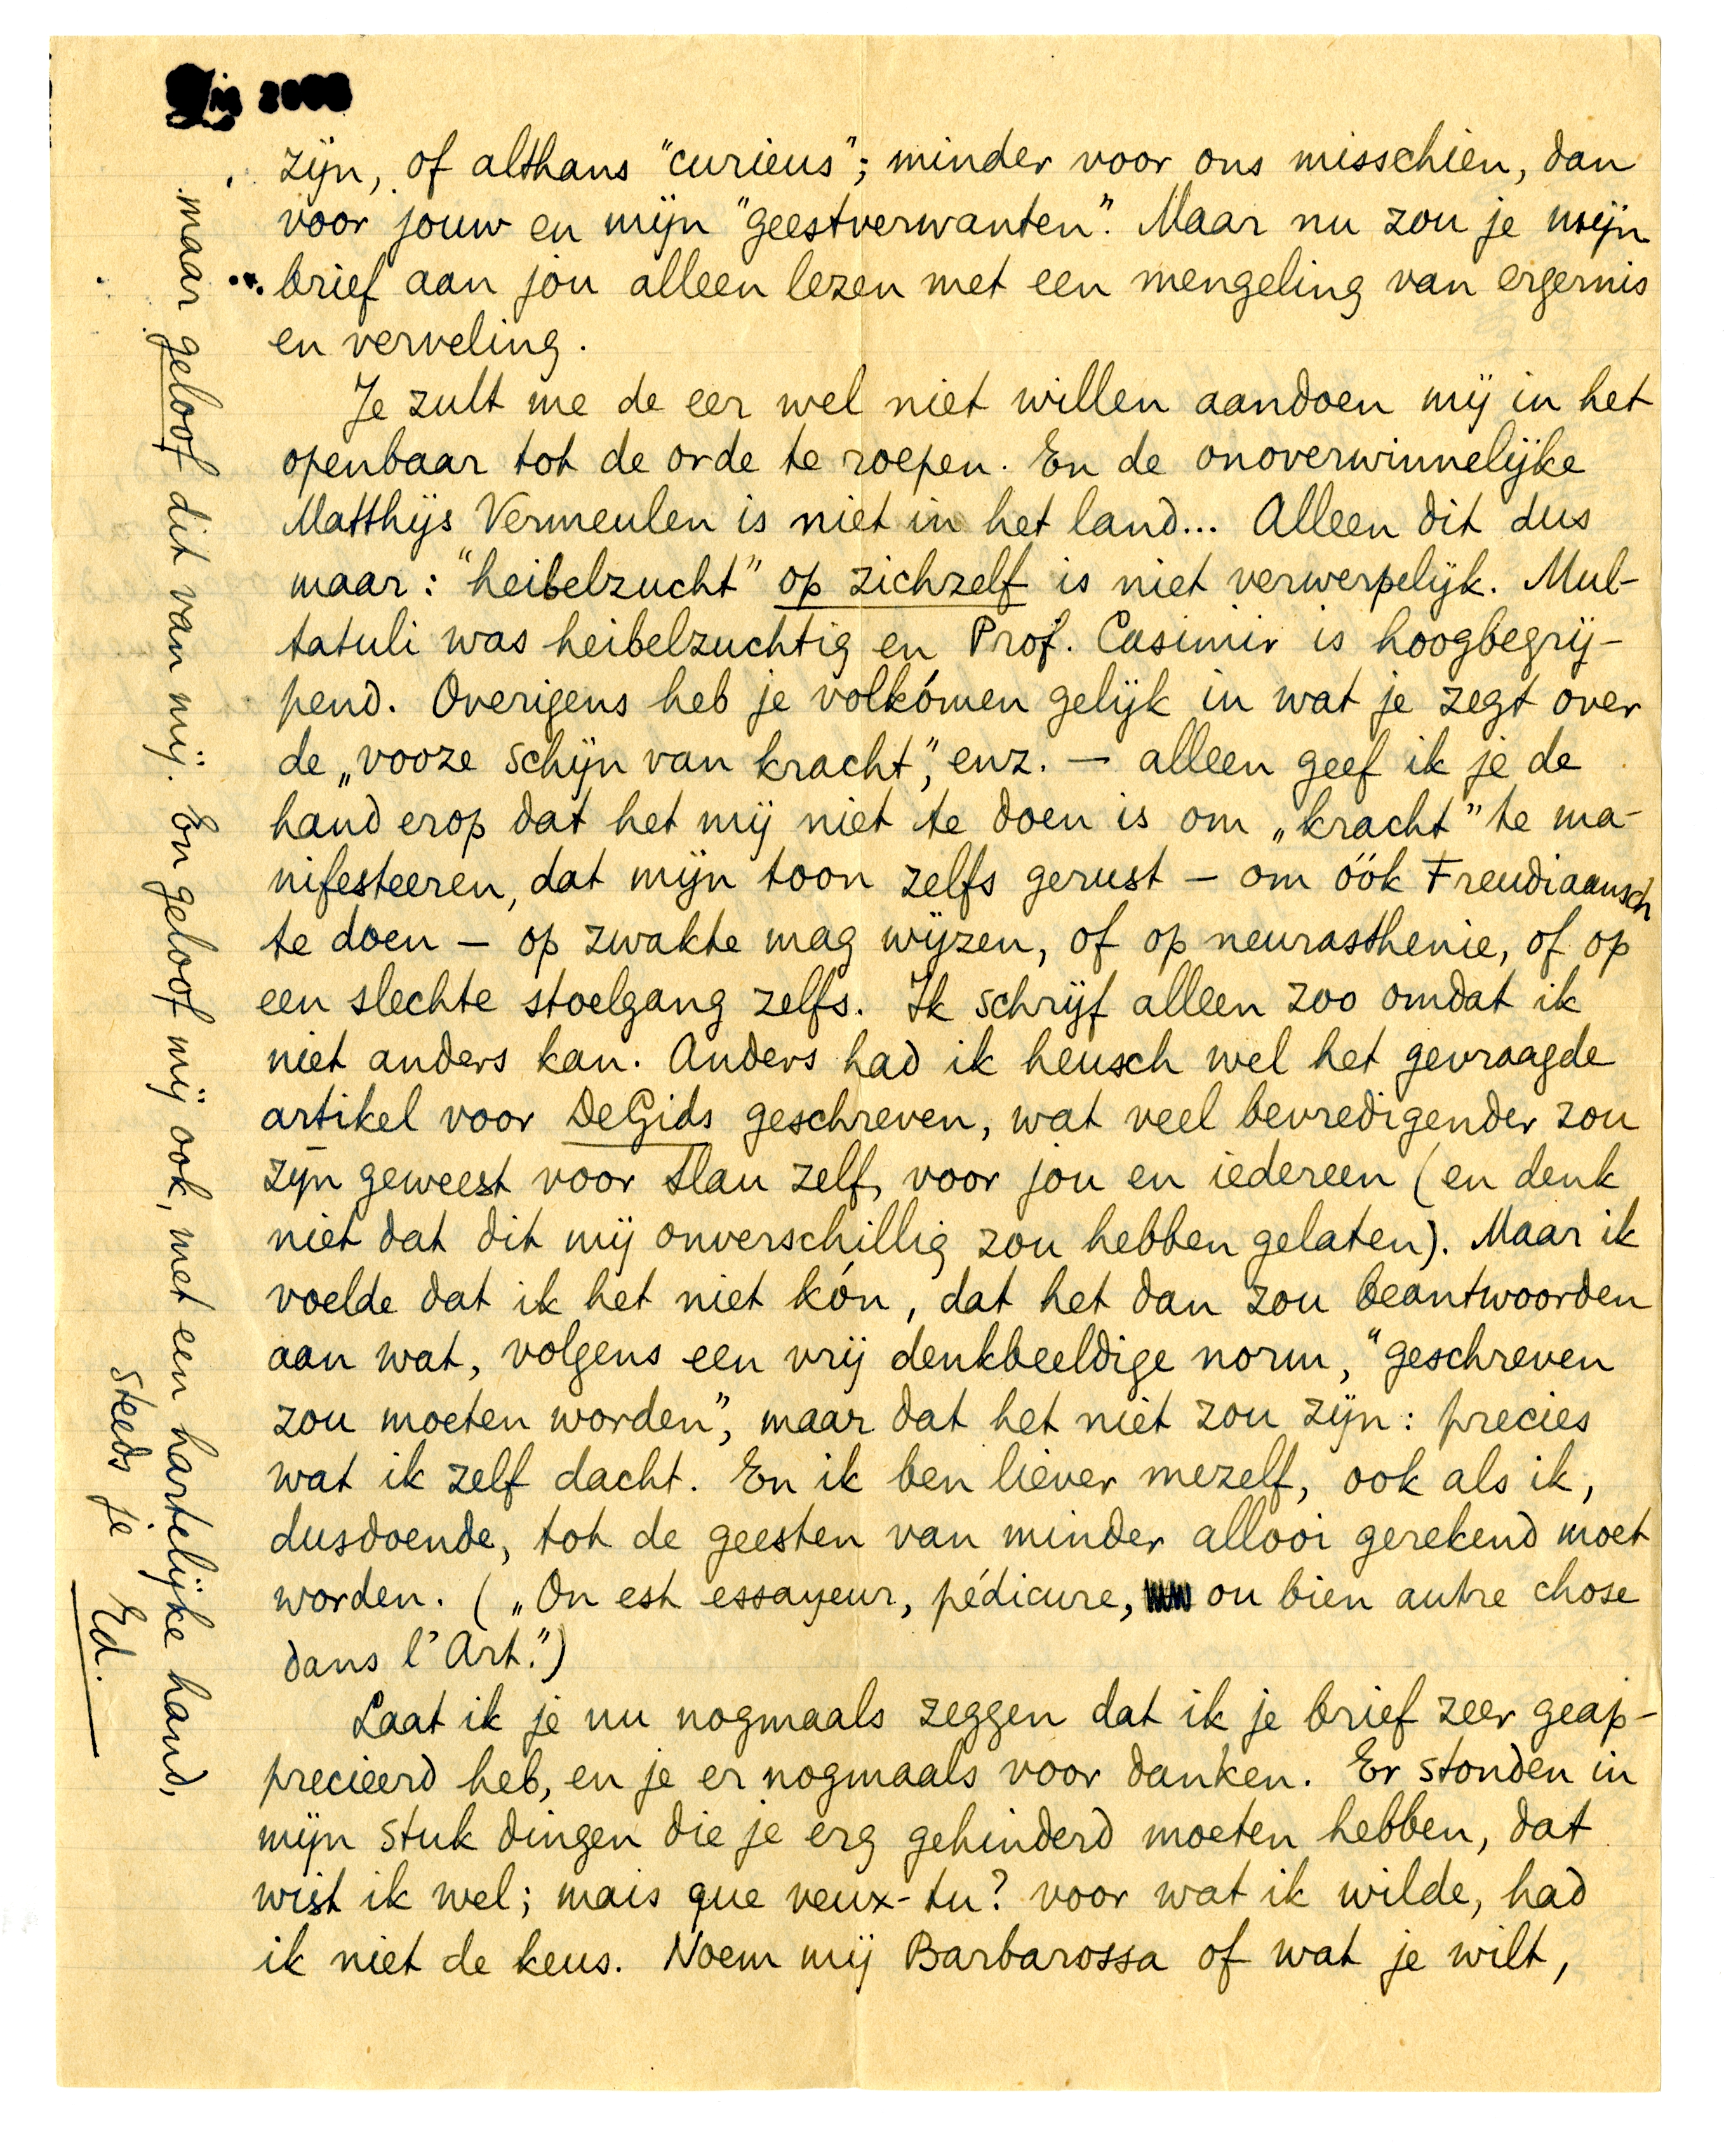 zijn, of althans "curieus"; minder voor ons misschien, dan
voor jouw en mijn "geestverwanten". Maar nu zou je mijn
brief aan jou alleen lezen met een mengeling van ergernis
en verveling.
Je zult me de eer wel niet willen aandoen mij in het
openbaar tot de orde te roepen. En de onoverwinnelijke
Matthijs Vermeulen is niet in het land... Alleen dit dus
maar: "heibelzucht" op zichzelf is niet verwerpelijk. Mul-
tatuli was heibelzuchtig en Prof. Casimir is hoogbegrij-
pend. Overigens heb je volkómen gelijk in wat je zegt over
de „vooze schijn van kracht", enz. — alleen geef ik je de
hand erop dat het mij niet te doen is om „kracht" te ma-
nifesteeren, dat mijn toon zelfs gerust — om óók Freudiaansch
te doen — op zwakte mag wijzen, of op neurasthenie, of op
een slechte stoelgang zelfs. Ik schrijf alleen zoo omdat ik
niet anders kan. Anders had ik heusch wel het gevraagde
artikel voor De Gids geschreven, wat veel bevredigender zou
zijn geweest voor Slau zelf, voor jou en iedereen (en denk
niet dat dit mij onverschillig zou hebben gelaten). Maar ik
voelde dat ik het niet kón, dat het dan zou beantwoorden
aan wat, volgens een vrij denkbeeldige norm, "geschreven
zou moeten worden", maar dat het niet zou zijn: precies
wat ik zelf dacht. En ik ben liever mezelf, ook als ik,
dusdoende, tot de geesten van minder allooi gerekend moet
worden. („On est essayeur, pédicure, ou bien autre chose
dans l'Art.")
Laat ik je nu nogmaals zeggen dat ik je brief zeer geap-
precieerd heb, en je er nogmaals voor danken. Er stonden in
mijn stuk dingen die je erg gehinderd moeten hebben, dat
wist ik wel; mais que veux-tu? voor wat ik wilde, had
ik niet de keus. Noem mij Barbarossa of wat je wilt,
maar geloof dit van mij. En geloof mij ook, met een hartelijke hand,
steeds je
Ed.